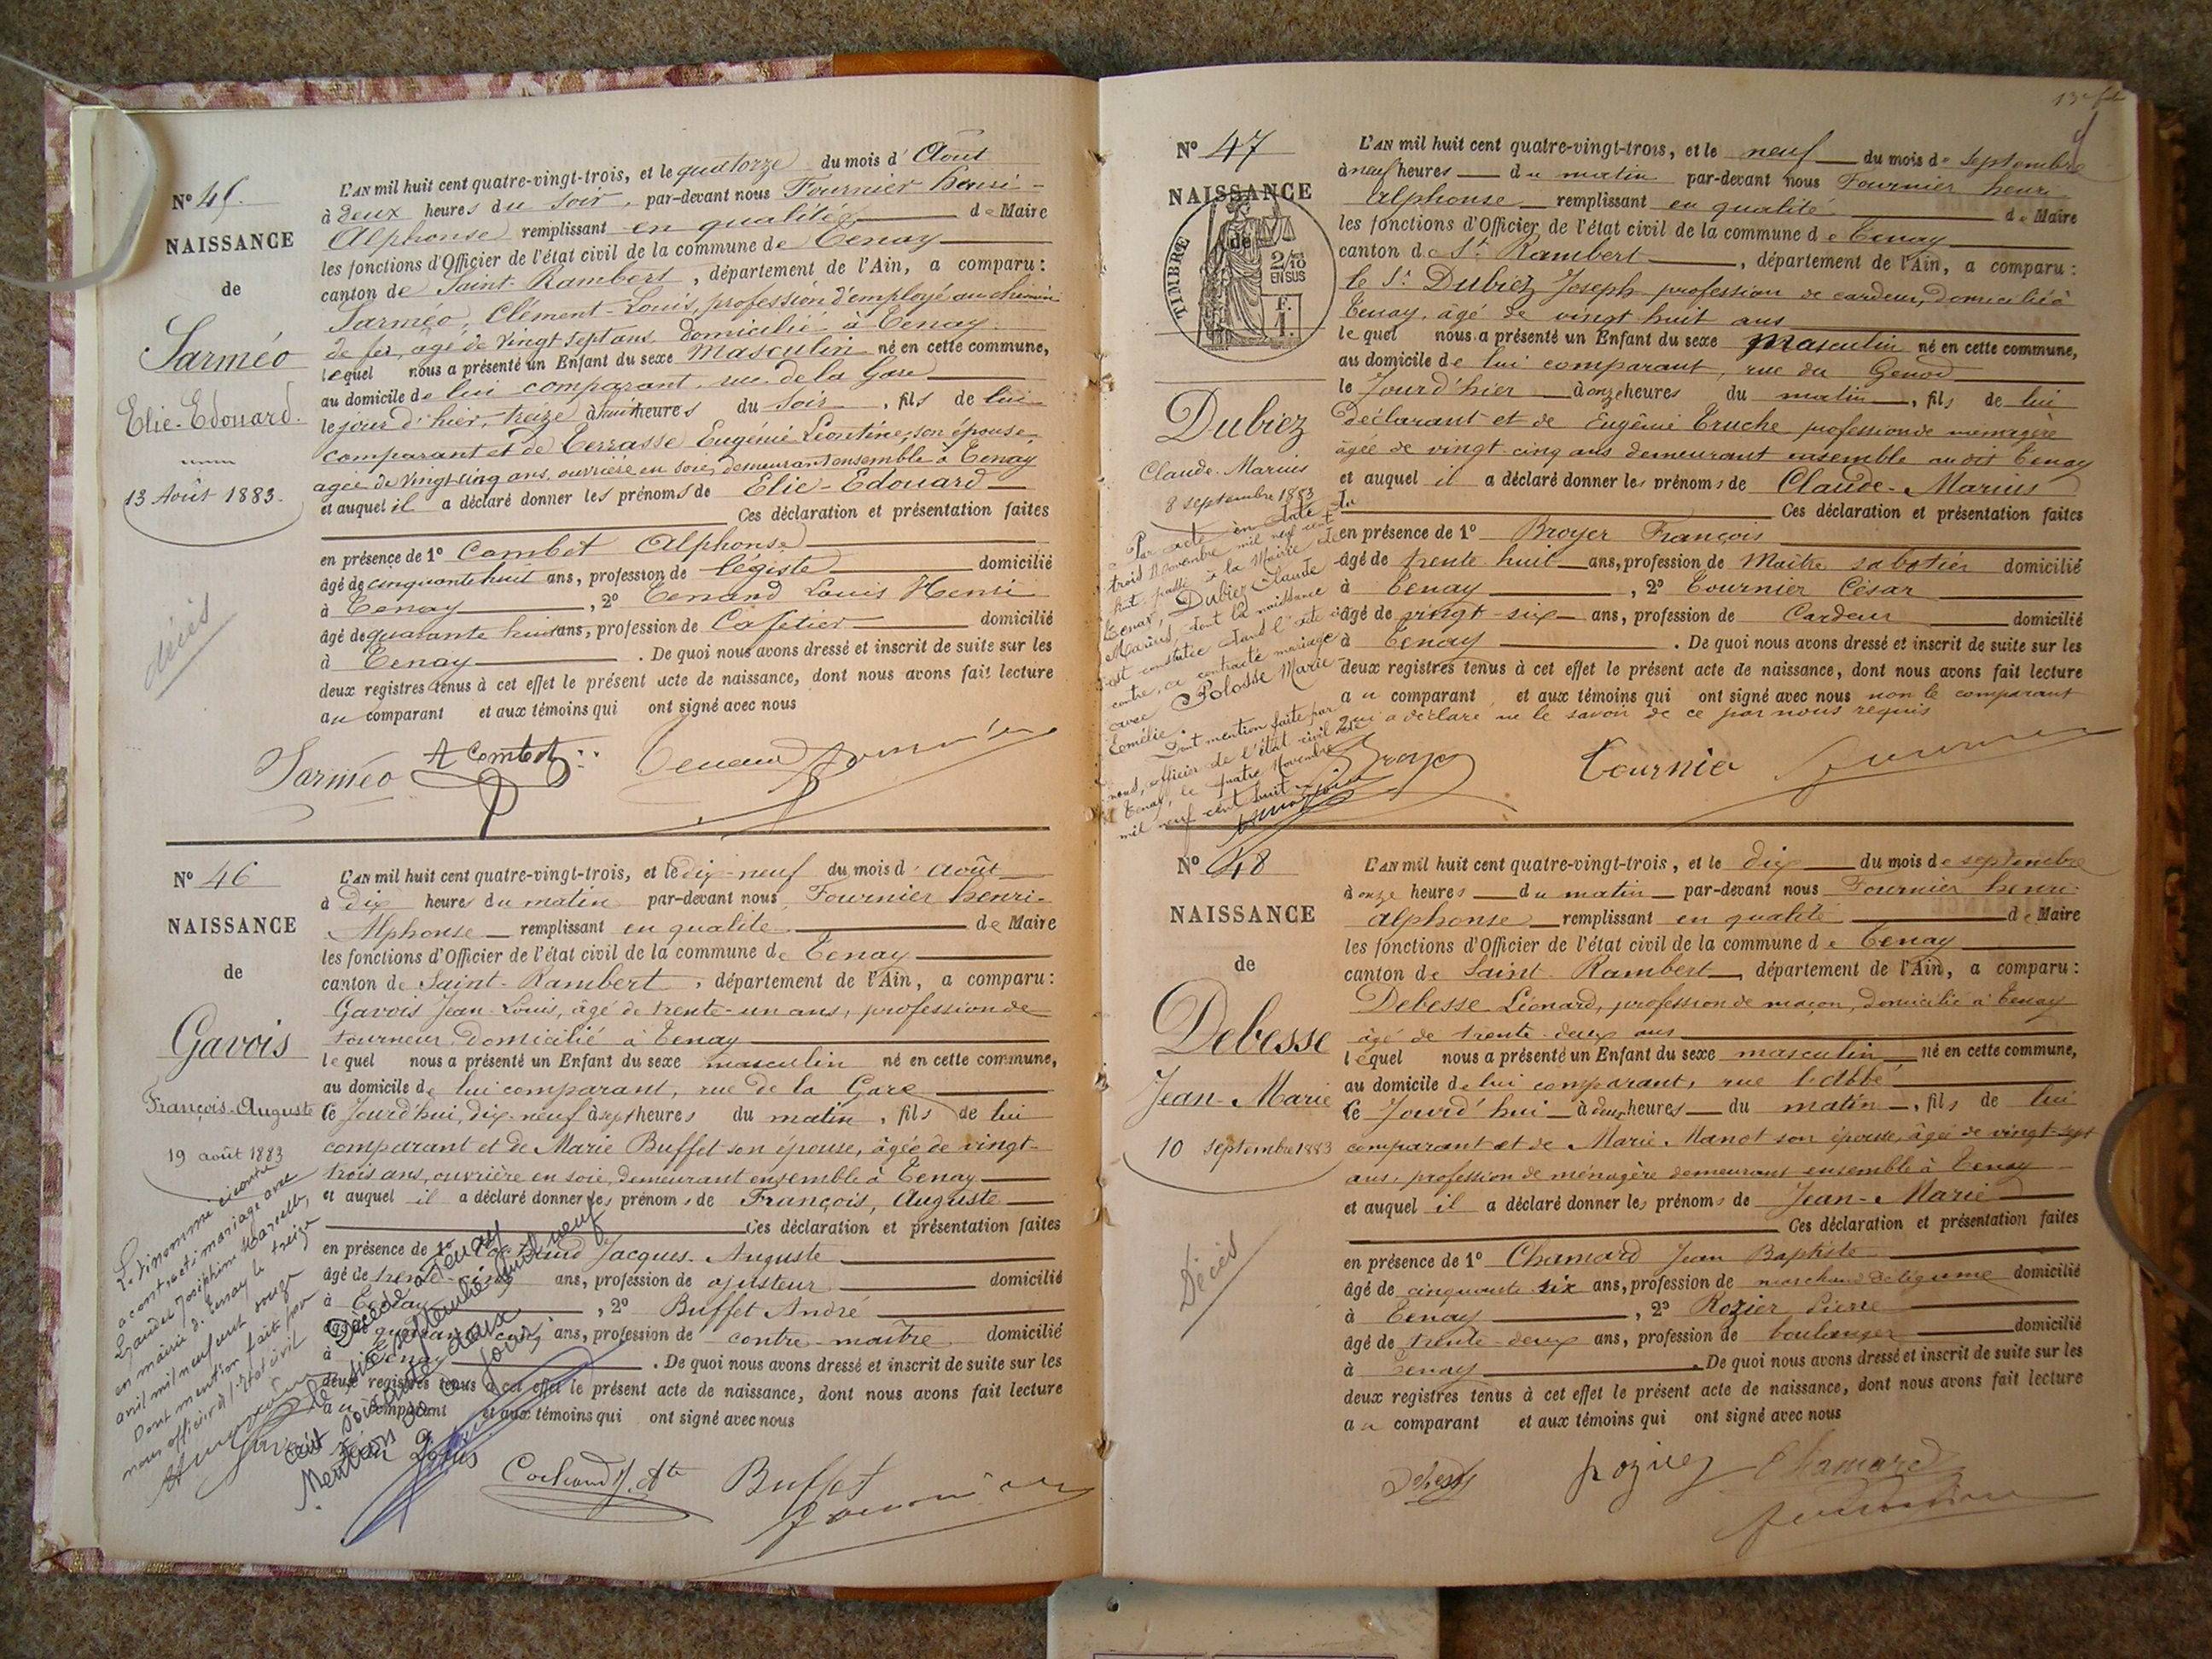 N° 45.
NAISSANCE
de
Sarméo
Elie-Edouard.
13 Août 1883.
décès
L'AN mil huit cent quatre-vingt-trois, et le quatorze du mois d' Août
à deux heures du soir, par-devant nous Fournier henri-
Alphonse remplissant en qualité de Maire
les fonctions d'Officier de l'état civil de la commune de Tenay
canton de Saint-Rambert, département de l'Ain, a comparu:
Sarméo, Clément-Louis, profession d'employé au chemin
de fer, âgé de vingt sept ans, domicilié à Tenay.
lequel nous a présenté un Enfant du sexe Masculin né en cette commune,
au domicile de lui comparant, rue de la Gare
le jour d'hier, treize à heures du soir, fils de lui
comparant et de Terrasse Eugénie Léontine, son épouse,
agée de vingt-cinq ans, ouvrière en soie, demeurant ensemble à Tenay
et auquel il a déclaré donner les prénoms de Elie-Edouard
Ces déclaration et présentation faites
en présence de 1° Combet Alphonse
âgé de cinquante huit ans, profession de légiste domicilié
à Tenay, 2° Tenand Louis Henri
âgé de quarante huit ans, profession de Cafetier domicilié
à Tenay. De quoi nous avons dressé et inscrit de suite sur les
deux registres tenus à cet effet le présent acte de naissance, dont nous avons fait lecture
au comparant et aux témoins qui ont signé avec nous
Sarméo A Combet Tenand Fournier
N° 46
NAISSANCE
de
Gavois
François-Auguste
19 août 1883
Le sinommé
a contracté mariage avec
Josephine Marcelle,
en mairie de Tenay le treize
avril mil neuf cent douze
Dont mention faite par
nous officier de l'état civil
L'AN mil huit cent quatre-vingt-trois, et le dix-neuf du mois d' Août
à dix heures du matin par-devant nous Fournier henri-
Alphonse remplissant en qualité de Maire
les fonctions d'Officier de l'état civil de la commune de Tenay
canton de Saint-Rambert, département de l'Ain, a comparu:
Gavois Jean-Louis, âgé de trente-un ans, profession de
tourneur, domicilié à Tenay
lequel nous a présenté un Enfant du sexe masculin né en cette commune,
au domicile de lui comparant, rue de la Gare
Ce Jourd'hui, dix-neuf à sept heures du matin, fils de lui
comparant et de Marie Buffet son épouse, âgée de vingt-
trois ans, ouvrière en soie, demeurant ensemble à Tenay
et auquel il a déclaré donner les prénoms de François, Auguste
Ces déclaration et présentation faites
en présence de 1° Jacques-Auguste
âgé de trente-cinq ans, profession de ajusteur domicilié
à Tenay, 2° Buffet André
âgé ans, profession de contre-maître domicilié
à Tenay. De quoi nous avons dressé et inscrit de suite sur les
deux registres tenus à cet effet le présent acte de naissance, dont nous avons fait lecture
au comparant et aux témoins qui ont signé avec nous
Décédé à Tenay
le dix septembre mil neuf
cent soixante deux
Mention du
Gavois Buffet Fournier
13e
N° 47
NAISSANCE
de
TIMBRE
2/10
EN SUS
F.
1.
Dubiez
Claude-Marius
8 septembre 1883
Par acte en date du
trois Novembre mil neuf cent
huit, passé à la Mairie de
Tenay, Dubiez Claude
Marius, dont la naissance
est constatée dans l'acte ci-
contre, a contracté mariage
avec Polosse Marie
Emélie.
Dont mention faite par
nous, officier de l'état civil de
Tenay, le quatre Novembre
mil neuf cent huit
L'AN mil huit cent quatre-vingt-trois, et le neuf du mois de septembre
à neuf heures du matin par-devant nous Fournier henri
Alphonse remplissant en qualité de Maire
les fonctions d'Officier de l'état civil de la commune de Tenay
canton de St. Rambert, département de l'Ain, a comparu:
le Sr. Dubiez Joseph profession de cardeur, domicilié à
Tenay, âgé de vingt huit ans
lequel nous a présenté un Enfant du sexe masculin né en cette commune,
au domicile de lui comparant, rue du Genod
le Jourd'hier à onze heures du matin, fils de lui
déclarant et de Eugénie Truche profession de ménagère
âgée de vingt-cinq ans demeurant ensemble au dit Tenay
et auquel il a déclaré donner les prénoms de Claude-Marius
Ces déclaration et présentation faites
en présence de 1° Broyer François
âgé de trente huit ans, profession de Maître sabotier domicilié
à Tenay, 2° Tournier César
âgé de vingt-six ans, profession de Cardeur domicilié
à Tenay. De quoi nous avons dressé et inscrit de suite sur les
deux registres tenus à cet effet le présent acte de naissance, dont nous avons fait lecture
au comparant et aux témoins qui ont signé avec nous non le comparant
qui a déclaré ne le savoir de ce par nous requis
Broyer Tournier Fournier
N° 48
NAISSANCE
de
Debesse
Jean-Marie
10 septembre 1883
Décès
L'AN mil huit cent quatre-vingt-trois, et le dix du mois de septembre
à onze heures du matin par-devant nous Fournier henri-
Alphonse remplissant en qualité de Maire
les fonctions d'Officier de l'état civil de la commune de Tenay
canton de Saint-Rambert, département de l'Ain, a comparu:
Debesse Léonard, profession de maçon, domicilié à Tenay
âgé de trente-deux ans
lequel nous a présenté un Enfant du sexe masculin né en cette commune,
au domicile de lui comparant, rue l'abbé
Ce Jourd'hui à deux heures du matin, fils de lui
comparant et de Marie Manot son épouse, âgée de vingt-sept
ans, profession de ménagère demeurant ensemble à Tenay
et auquel il a déclaré donner les prénoms de Jean-Marie
Ces déclaration et présentation faites
en présence de 1° Chamard Jean Baptiste
âgé de cinquante six ans, profession de marchand de légume domicilié
à Tenay, 2° Rozier Pierre
âgé de trente-deux ans, profession de boulanger domicilié
à Tenay. De quoi nous avons dressé et inscrit de suite sur les
deux registres tenus à cet effet le présent acte de naissance, dont nous avons fait lecture
au comparant et aux témoins qui ont signé avec nous
Rozier Chamard
Fournier